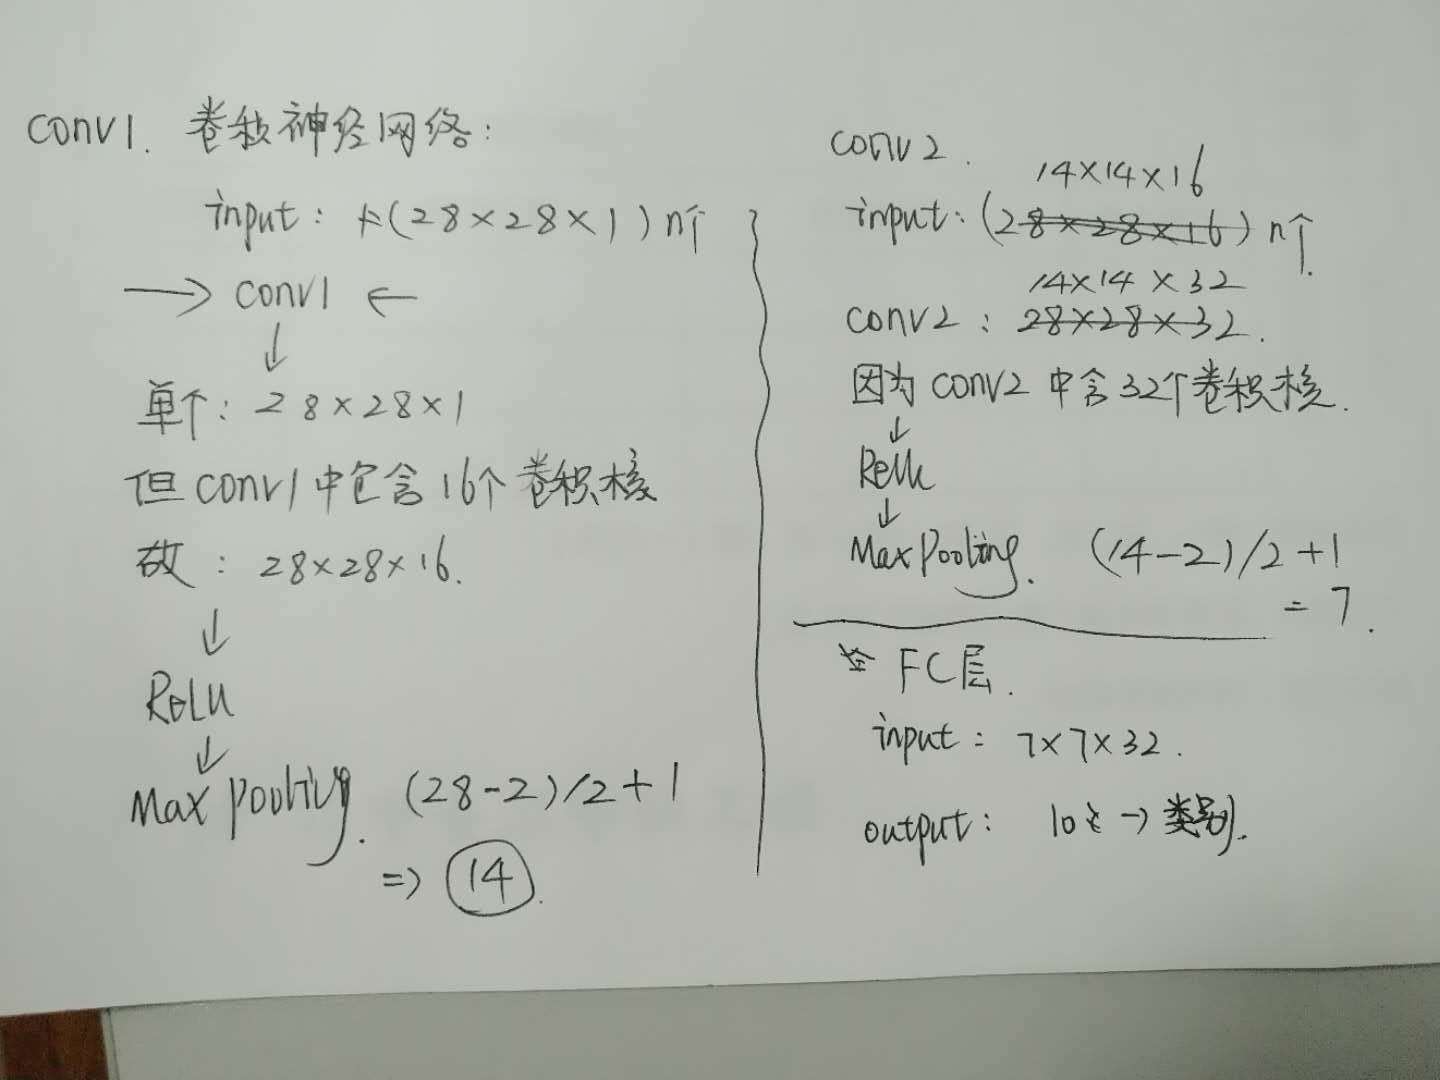 conv1. 卷积神经网络:
input: (28×28×1) n个
→ conv1 ←
↓
单个: 28×28×1
但conv1中包含16个卷积核
故: 28×28×16.
↓
ReLU
↓
Max pooling. (28-2)/2+1
=> 14.
conv2.
14×14×16
input: (28×28×16) n个.
14×14×32
conv2: 28×28×32.
因为conv2中含32个卷积核.
↓
Relu
↓
Max Pooling. (14-2)/2+1
= 7.
FC层.
input: 7×7×32.
output: 10 → 类别.